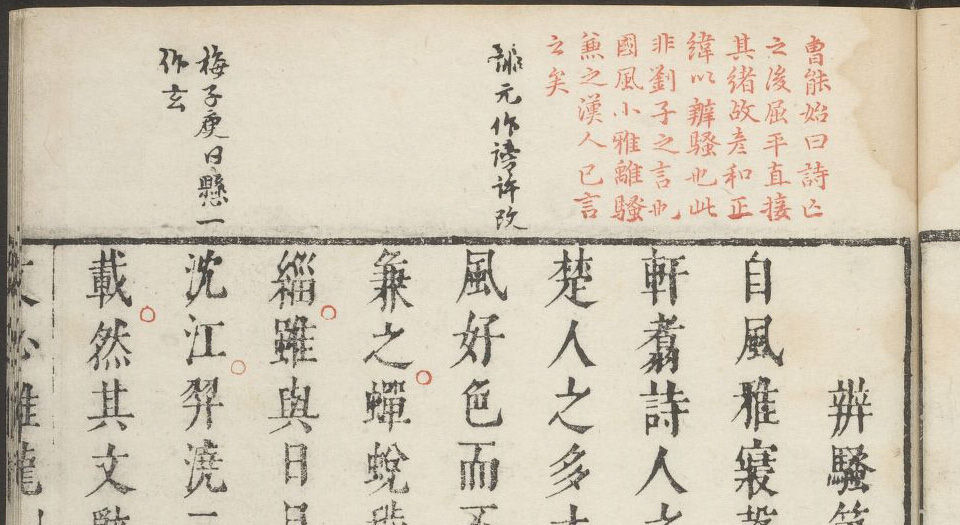 曹能始曰詩亡
之後屈平直接
其緒故彥和正
緯以辨騷也此
非劉子之言也
國風小雅離騷
兼之漢人已言
之矣
元作謗許改
梅子庾曰懸一
作玄
辨騷
自風雅寢
軒翥詩人
楚人之多
風好色而
兼之蟬蛻
緇雖與日
沈江羿澆
載然其文
文心雕龍